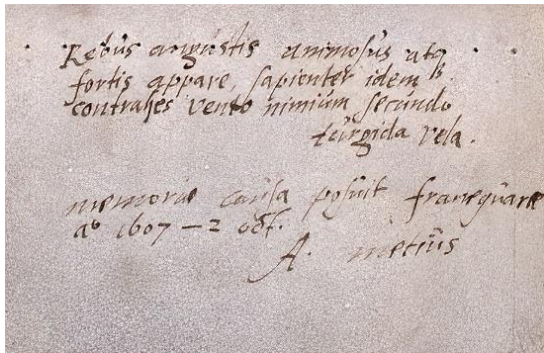 Rebus angustis animosus atq
fortis appare, sapienter idem
contrahes vento nimium secundo
turgida vela.
memoriæ causa posuit franequaræ
aº 1607 – 2 oct.
A. metiüs